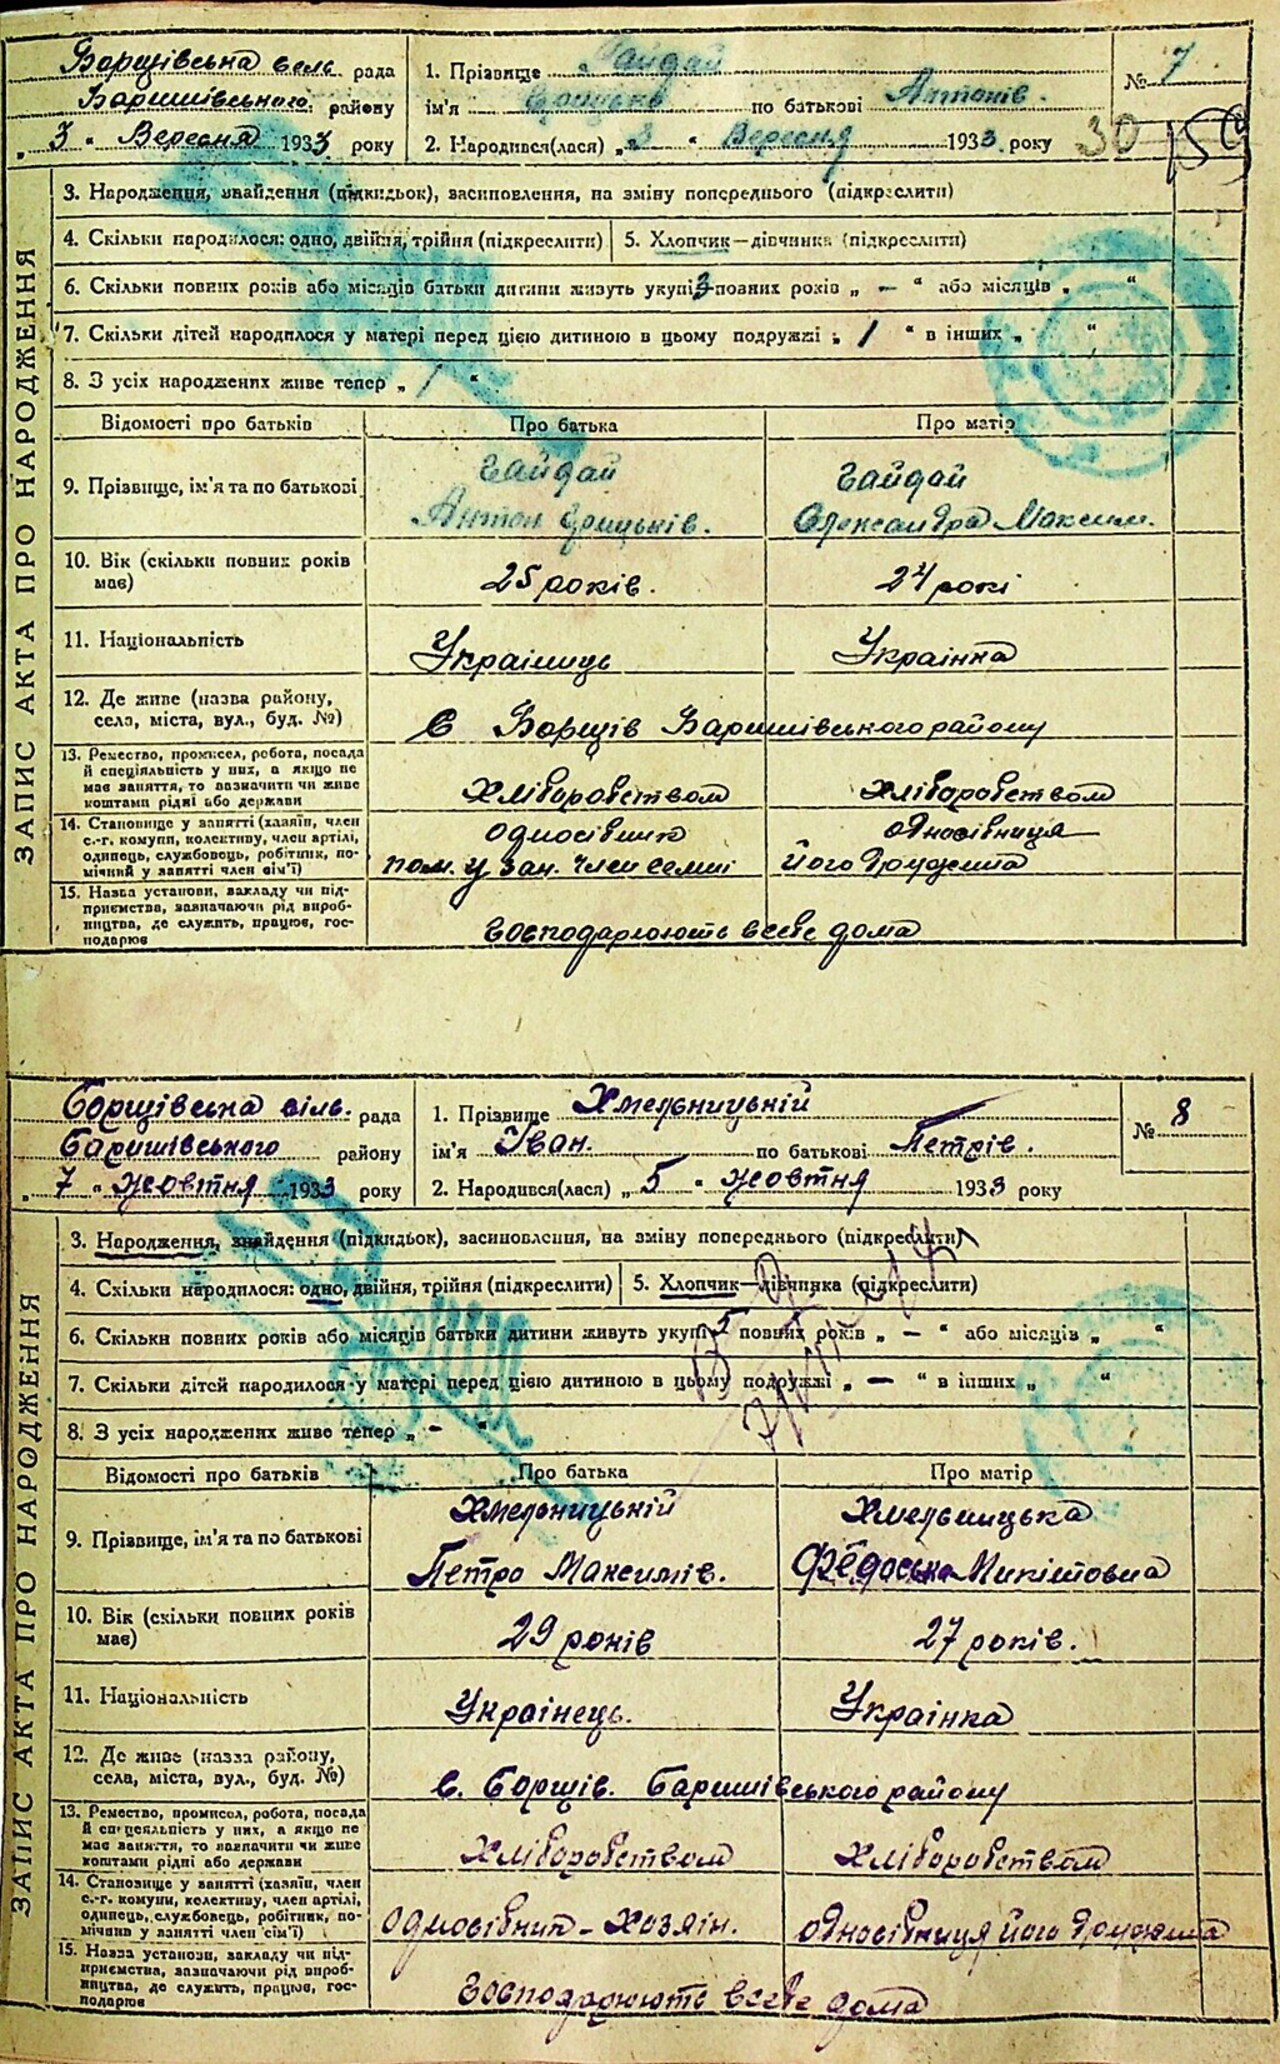 Борщівська сель рада
Баришівського району
„ 3 “ Вересня 1933 року
1. Прізвище Гайдай
ім'я Грицько по батькові Антонів.
2. Народився(лася) „ 3 “ Вересня 1933 року
№ 7
30 159
ЗАПИС АКТА ПРО НАРОДЖЕННЯ
3. Народження, знайдення (підкидьок), засиновлення, на зміну попереднього (підкреслити)
4. Скільки народилося: одно, двійня, трійня (підкреслити) 5. Хлопчик—дівчинка (підкреслити)
6. Скільки повних років або місяців батьки дитини живуть укупі 3 повних років „ — “ або місяців „ “
7. Скільки дітей народилося у матері перед цією дитиною в цьому подружжі „ 1 “ в інших „ “
8. З усіх народжених живе тепер „ 1 “
Відомості про батьків Про батька Про матір
9. Прізвище, ім'я та по батькові
Гайдай Гайдай
Антон Грицьків. Олександра Максим.
10. Вік (скільки повних років має)
25 років. 24 рокі
11. Національність Українець Українка
12. Де живе (назва району, села, міста, вул., буд. №)
с Борщів Баришівського району
13. Ремество, промисел, робота, посада
й спеціяльність у них, а якщо не
має заняття, то зазначити чи живе
коштами рідні або держави
Хліборобством Хліборобством
14. Становище у занятті (хазяїн, член
с.-г. комуни, колективу, член артілі,
одинець, службовець, робітник, по-
мічний у занятті член сім'ї)
односібник односібниця
пом. у зан. член семні його дружина
15. Назва установи, закладу чи під-
приємства, зазначаючи рід вироб-
ництва, де служить, працює, гос-
подарює
Господарюють в себе дома
Борщівська сіль. рада
Баришівського району
„ 7 “ Жовтня 1933 року
1. Прізвище Хмельницькій
ім'я Іван. по батькові Петрів.
2. Народився(лася) „ 5 “ Жовтня 1933 року
№ 8
ЗАПИС АКТА ПРО НАРОДЖЕННЯ
3. Народження, знайдення (підкидьок), засиновлення, на зміну попереднього (підкреслити)
4. Скільки народилося: одно, двійня, трійня (підкреслити) 5. Хлопчик—дівчинка (підкреслити)
6. Скільки повних років або місяців батьки дитини живуть укупі 5 повних років „ — “ або місяців „ “
7. Скільки дітей народилося у матері перед цією дитиною в цьому подружжі „ — “ в інших „ “
8. З усіх народжених живе тепер „ — “
Відомості про батьків Про батька Про матір
9. Прізвище, ім'я та по батькові
Хмельницькій Хмельницька
Петро Максимів. Федоська Микітовна
10. Вік (скільки повних років має)
29 років 27 років.
11. Національність Українець. Українка
12. Де живе (назва району, села, міста, вул., буд. №)
с. Борщів. Баришівського району
13. Ремество, промисел, робота, посада
й спецеяльність у них, а якщо не
має заняття, то зазначити чи живе
коштами рідні або держави
Хліборобством Хліборобством
14. Становище у занятті (хазяїн, член
с.-г. комуни, колективу, член артілі,
одинець, службовець, робітник, по-
мічний у занятті член сім'ї)
односібник - Хозяін. односібниця його дружина
15. Назва установи, закладу чи під-
приємства, зазначаючи рід вироб-
ництва, де служить, працює, гос-
подарює
Господарюють в себе дома